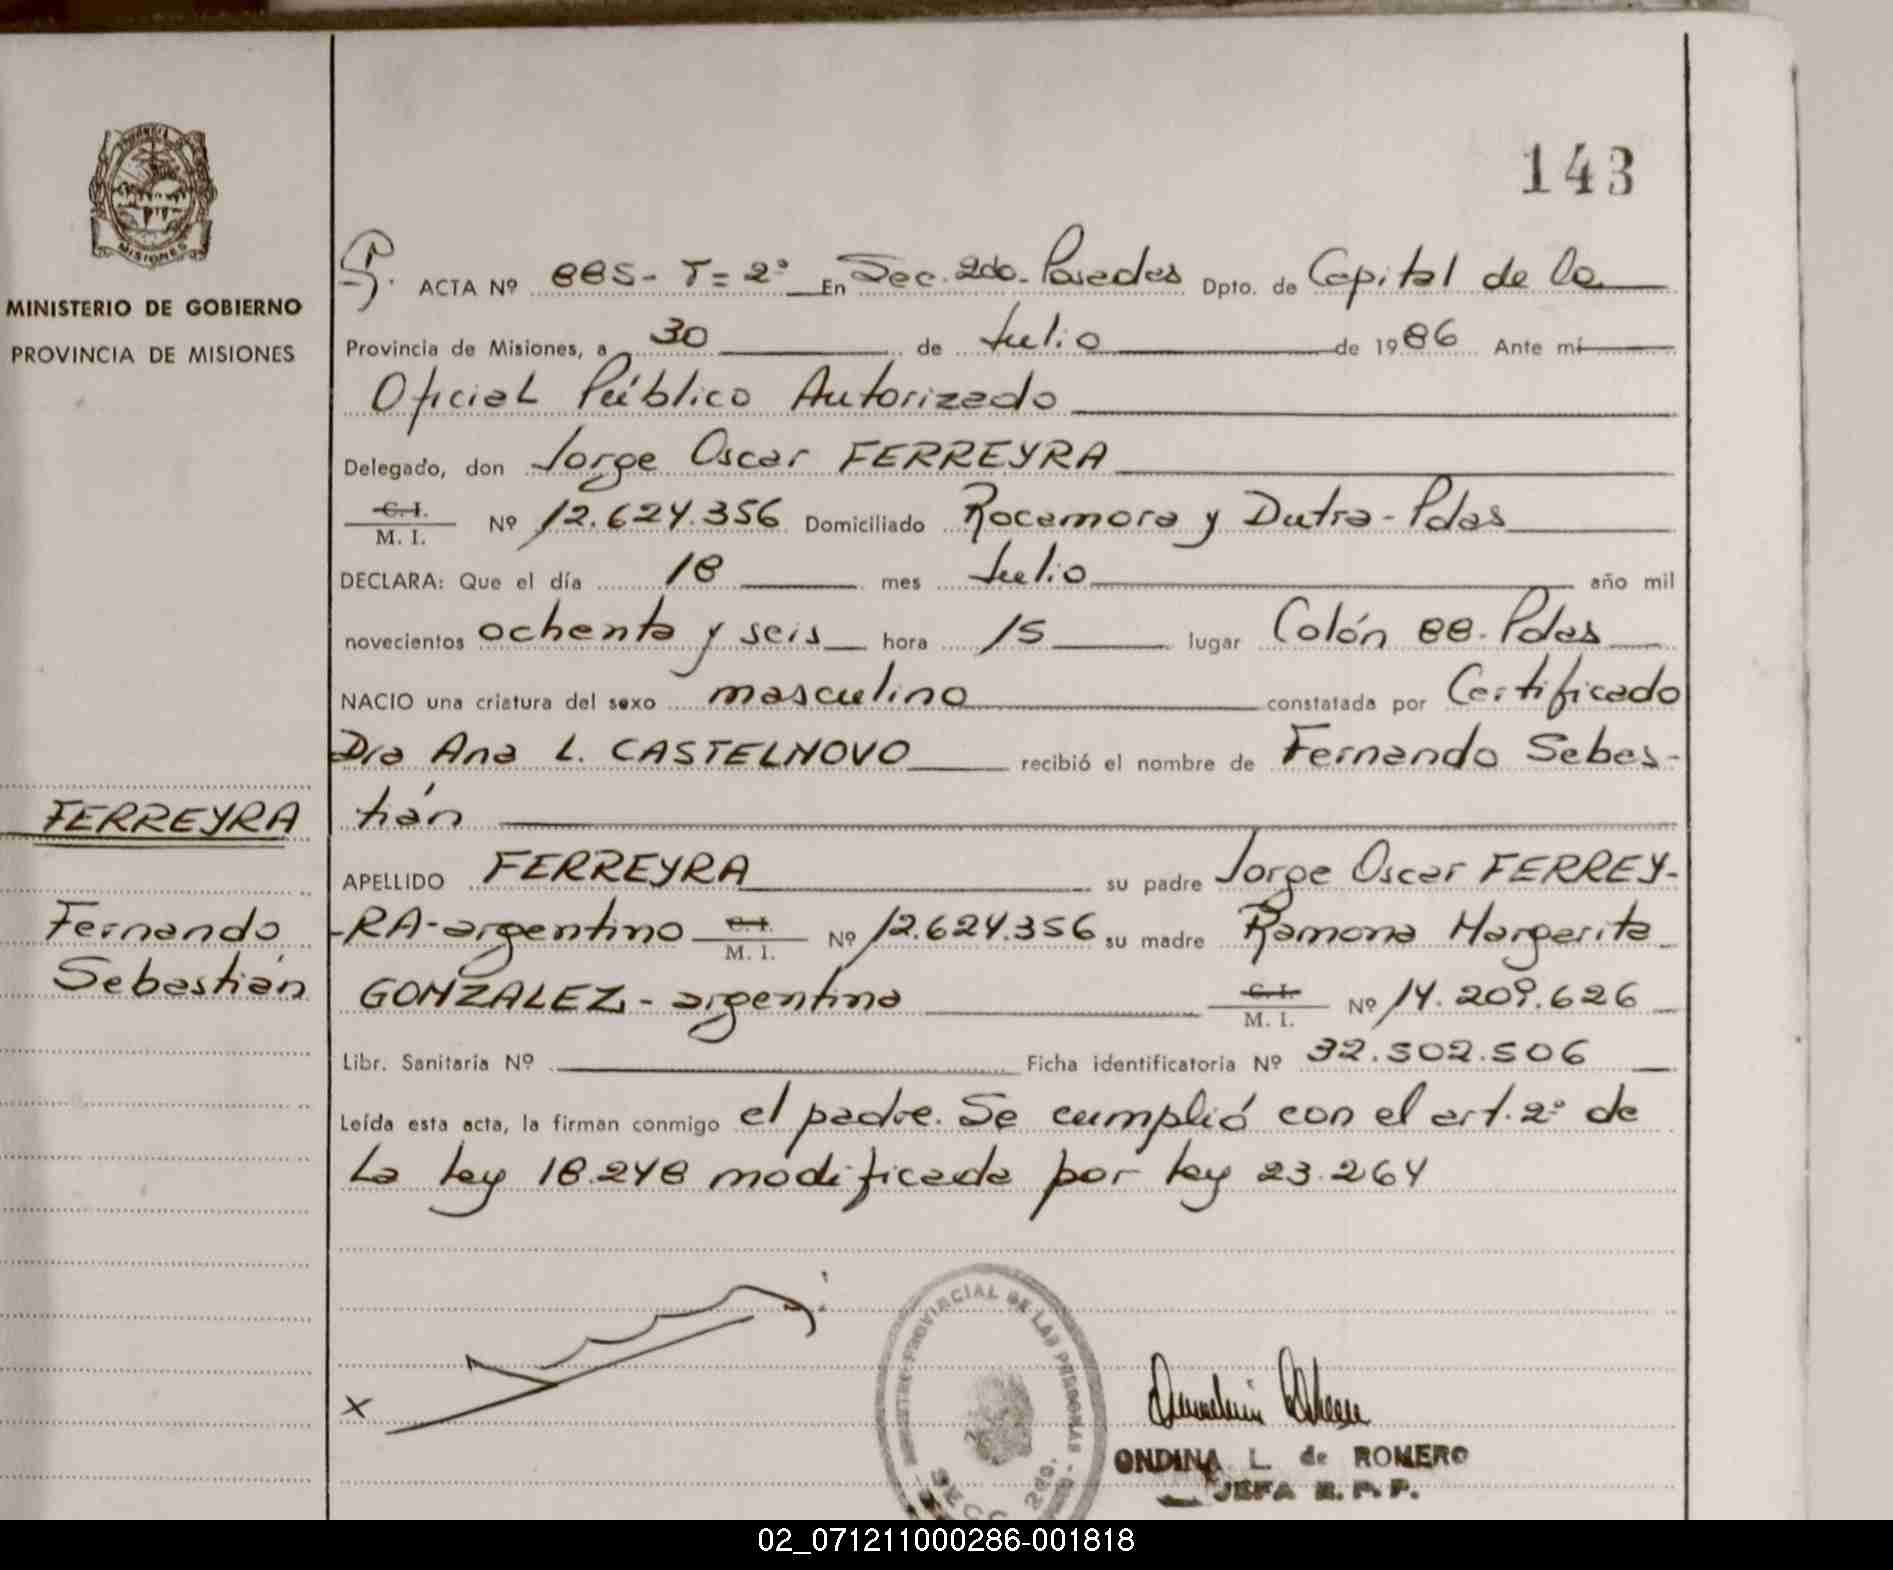 143
MISIONES
MINISTERIO DE GOBIERNO
PROVINCIA DE MISIONES
ACTA Nº 885- T=2º En Sec. 2do. Posadas Dpto. de Capital de la
Provincia de Misiones, a 30 de Julio de 1986 Ante mí
Oficial Público Autorizado
Delegado, don Jorge Oscar FERREYRA
C.I. / M. I. Nº 12.624.356 Domiciliado Rocamora y Dutra-Pdas
DECLARA: Que el día 18 mes Julio año mil
novecientos ochenta y seis hora 15 lugar Colón 88. Pdas
NACIO una criatura del sexo masculino constatada por Certificado
Dra Ana L. CASTELNOVO recibió el nombre de Fernando Sebas-
tián
APELLIDO FERREYRA su padre Jorge Oscar FERREY-
-RA-argentino C.I. / M. I. Nº 12.624.356 su madre Ramona Margarita
GONZALEZ - argentina C.I. / M. I. Nº 14.209.626
Libr. Sanitaria Nº Ficha identificatoria Nº 32.502.506
Leída esta acta, la firman conmigo el padre. Se cumplió con el art. 2º de
la ley 18.248 modificada por ley 23.264
FERREYRA
Fernando
Sebastián
X
PROVINCIAL DE LAS PERSONAS
SECC. 2do.
ONDINA L. de ROMERO
JEFA R. P. P.
02_071211000286-001818